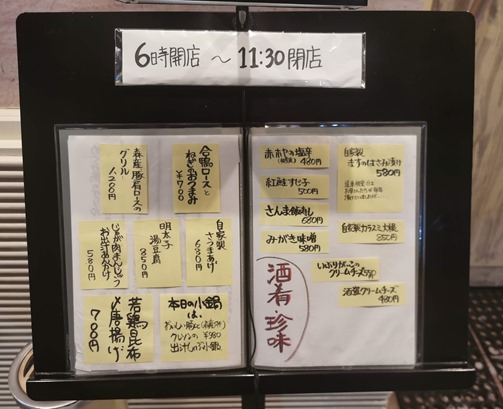 6時開店 〜 11:30閉店
森産豚肩ロースの
グリル
1,200円
合鴨ロースと
ねぎのおつまみ
¥700
じゃが肉まんじゅう
お出汁あんかけ
580円
明太子
湯豆腐
850円
自家製
さつまあげ
630円
若鶏昆布
〆唐揚げ
700円
本日の小鍋
は、
クレソンの ¥980
出汁しゃぶ小鍋
赤ホヤの塩辛
480円
紅鮭すじ子
500円
さんま飯寿し
680円
みがき味噌
580円
自家製
ますのはさみ漬け
580円
自家製カラスミ大根
850円
いぶりがっこの
クリームチーズ
酒盗クリームチーズ
480円
酒肴・珍味